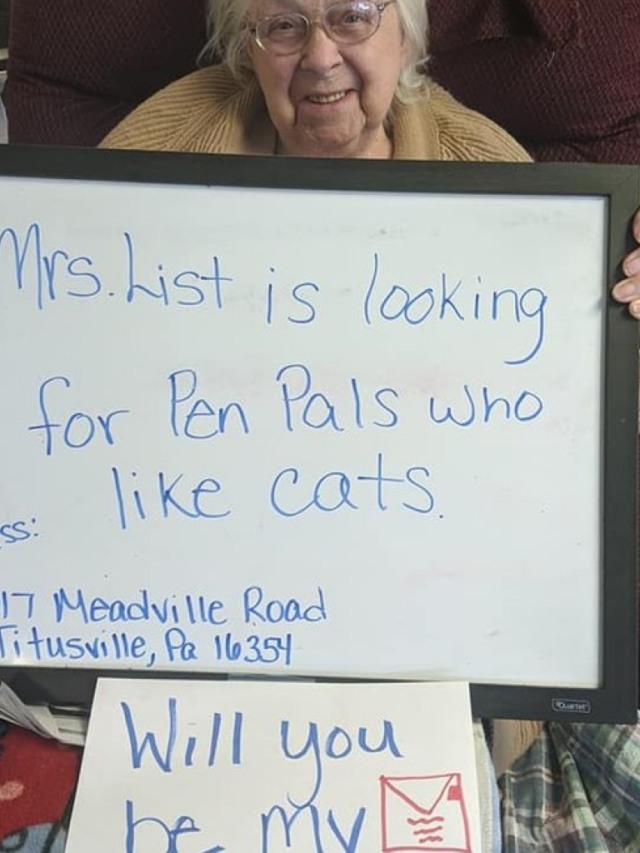 Mrs. List is looking
for Pen Pals who
like cats.
ss:
17 Meadville Road
Titusville, Pa 16354
Quartet
Will you
be my